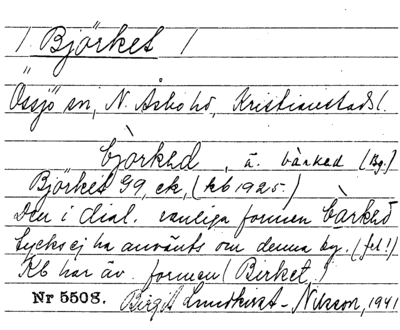 / Björket /
Össjö sn, N. Åsbo hd, Kristianstads l.
bjǒrkəd, ä. bàrkəd (Bg.)
Björket G9, ek, (kb 1925.)
Den i dial. vanliga formen bàrkəd
tycks ej ha använts om denna bg. (fel!)
Kb har äv. formen (Birket.)
Nr 5508. Birgit Lundkvist-Nilsson, 1941